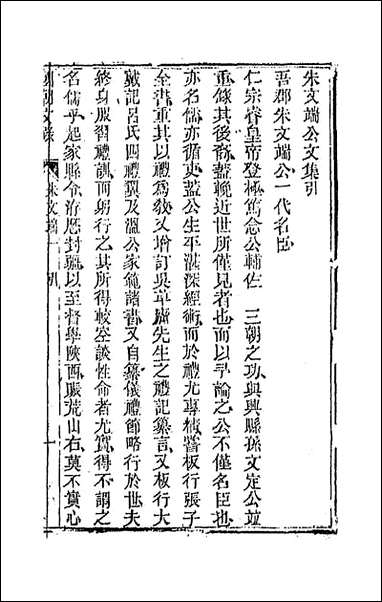 朱文端公文集引
吾郡朱文端公一代名臣
仁宗睿皇帝登極篤念公輔佐　三朝之功與興縣孫文定公並
重錄其後裔蓋輓近世所僅見者也而以予論之公不僅名臣也
亦名儒亦循吏蓋公生平湛深經術而於禮尤專精嘗板行張子
全書重其以禮為敎又增訂吳草廬先生之禮記纂言又板行大
戴記呂氏四禮翼及溫公家範諸書又自纂儀禮節略行於世夫
終身服習禮訓而躬行之其所得較空談性命者尤實得不謂之
名儒乎起家縣令洊歷封疆以至督學陝西賑荒山右莫不實心
朱文端　引